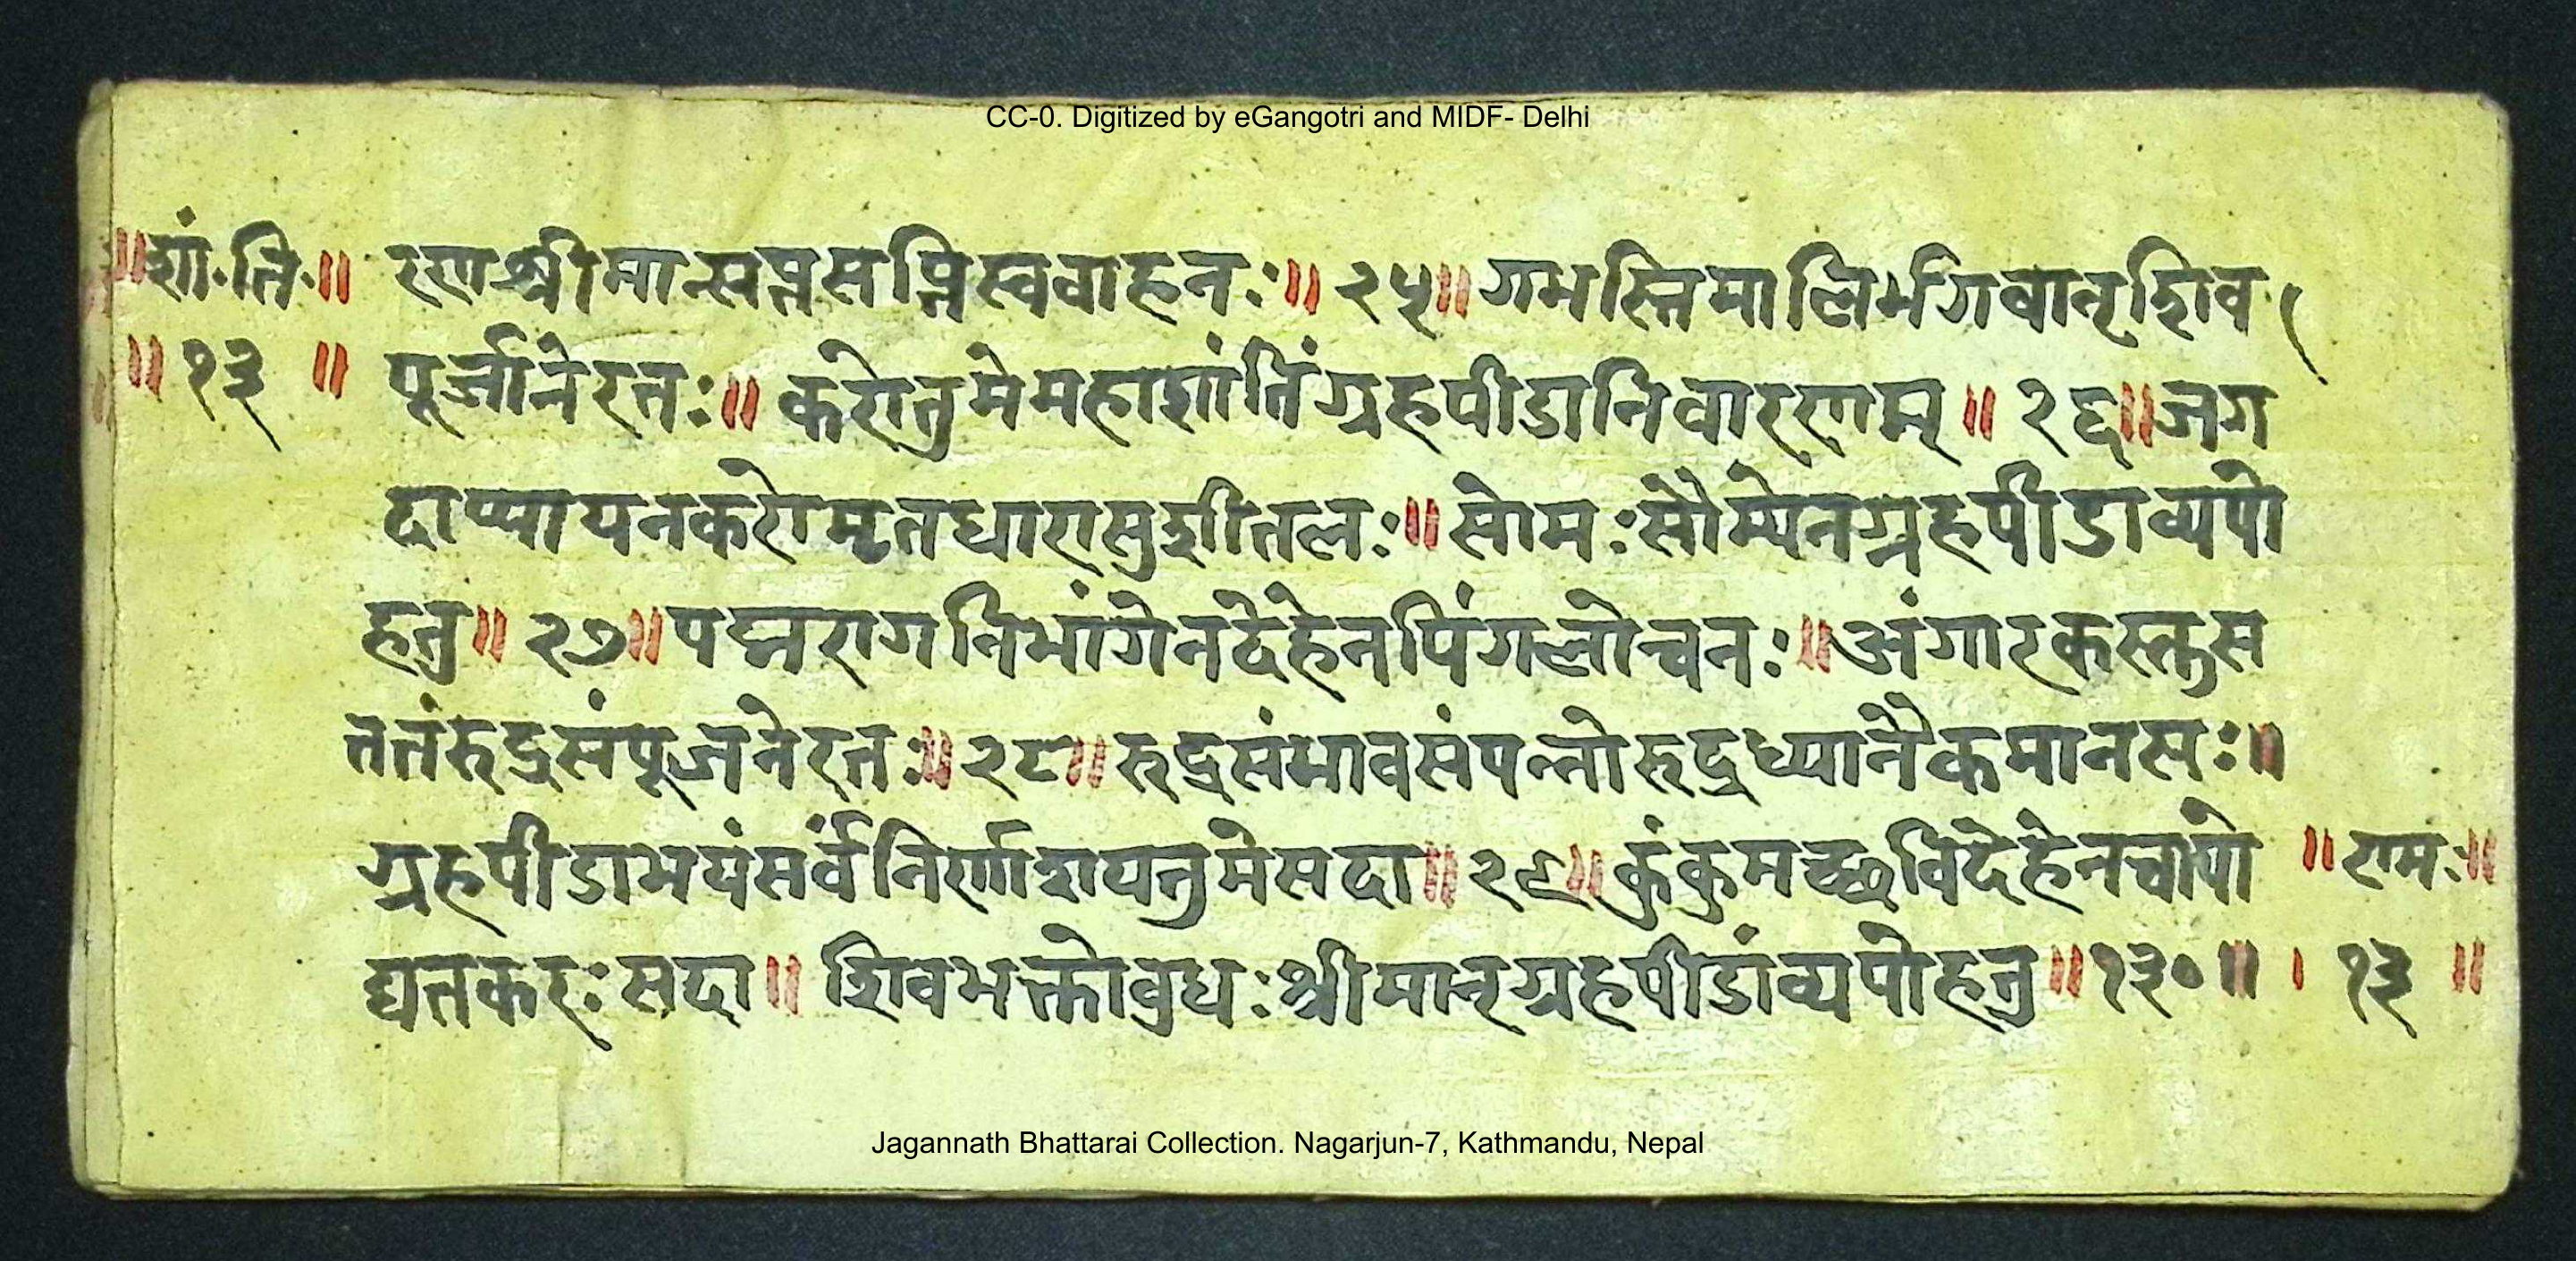 CC-0. Digitized by eGangotri and MIDF- Delhi
॥शां.ति.॥ रणश्रीमान्सप्तसप्तिस्ववाहनः॥ २५॥ गभस्तिमालिर्भगवान्शिव
॥१३ ॥ पूर्जानेरतः॥ करोतुमेमहाशांतिंग्रहपीडानिवारणम्॥ २६॥जग
दाप्यायनकरोमृतधारासुशीतलः॥ सोमःसौम्येनग्रहपीडाव्यपो
हतु॥ २७॥पद्मरागनिभांगेनदेहेनपिंगलोचनः॥अंगारकस्तुस
ततंरुद्रसंपूजनेरतः॥२८॥ रुद्रसंभावसंपन्नोरुद्रध्यानैकमानसः॥
ग्रहपीडाभयंसर्वंनिर्णाशयतुमेसदा॥ २९॥कुंकुमच्छविदेहेनचापो ॥रामः॥
द्यतकरःसदा॥ शिवभक्तोबुधःश्रीमान्ग्रहपीडांव्यपोहतु॥१३०॥ । १३ ॥
Jagannath Bhattarai Collection. Nagarjun-7, Kathmandu, Nepal